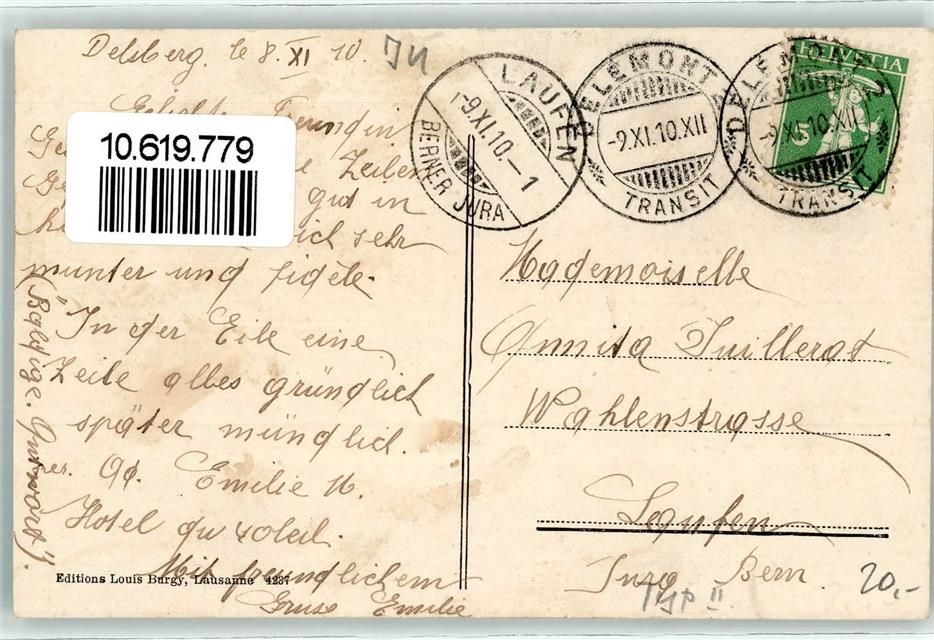 Delsberg, le 8. XI 10.
Freundin
Zeilen
10.619.779
gut in
sehr
munter und fidèle.
"In der Eile eine
Zeile alles gründlich
später mündlich.
Emilie
Hotel du soleil.
Mit freundlichem
Gruss Emilie
(Baldige. Antwort).
Editions Louis Burgy, Lausanne 4237
LAUFEN
-9.XI.10.-1
BERNER JURA
DELEMONT
-9.XI.10.XII
TRANSIT
DELEMONT
-9.XI.10.XII
TRANSIT
HELVETIA
5
Mademoiselle
Annita Juillerat
Wahlenstrasse
Laufen
Jura Bern.
Typ II.
20,-